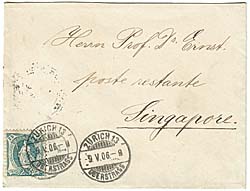 Herrn Prof. Dr. Ernst.
poste restante
Singapore.
ZÜRICH 13
9.V.06.-8
OBERSTRASS
ZÜRICH 13
9.V.06.-8
OBERSTRASS